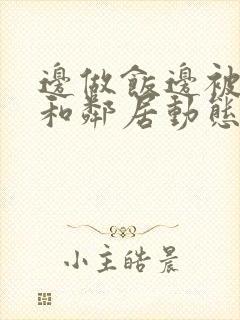 邊做飯邊被
和鄰居動態
小主皓晨